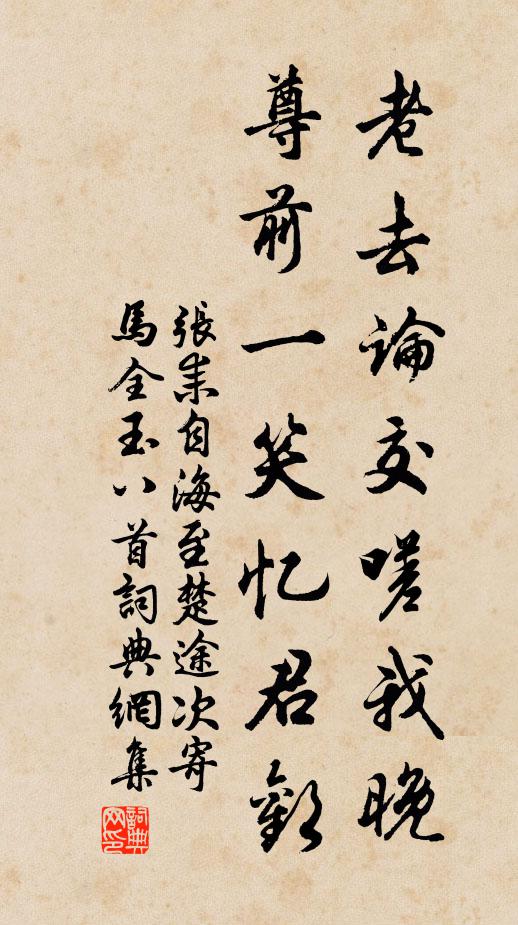 老去論交嗟我晚
尊前一笑忆君歡
張耒自海至楚途次寄
馬全玉八首詞典網集
詞典
网印